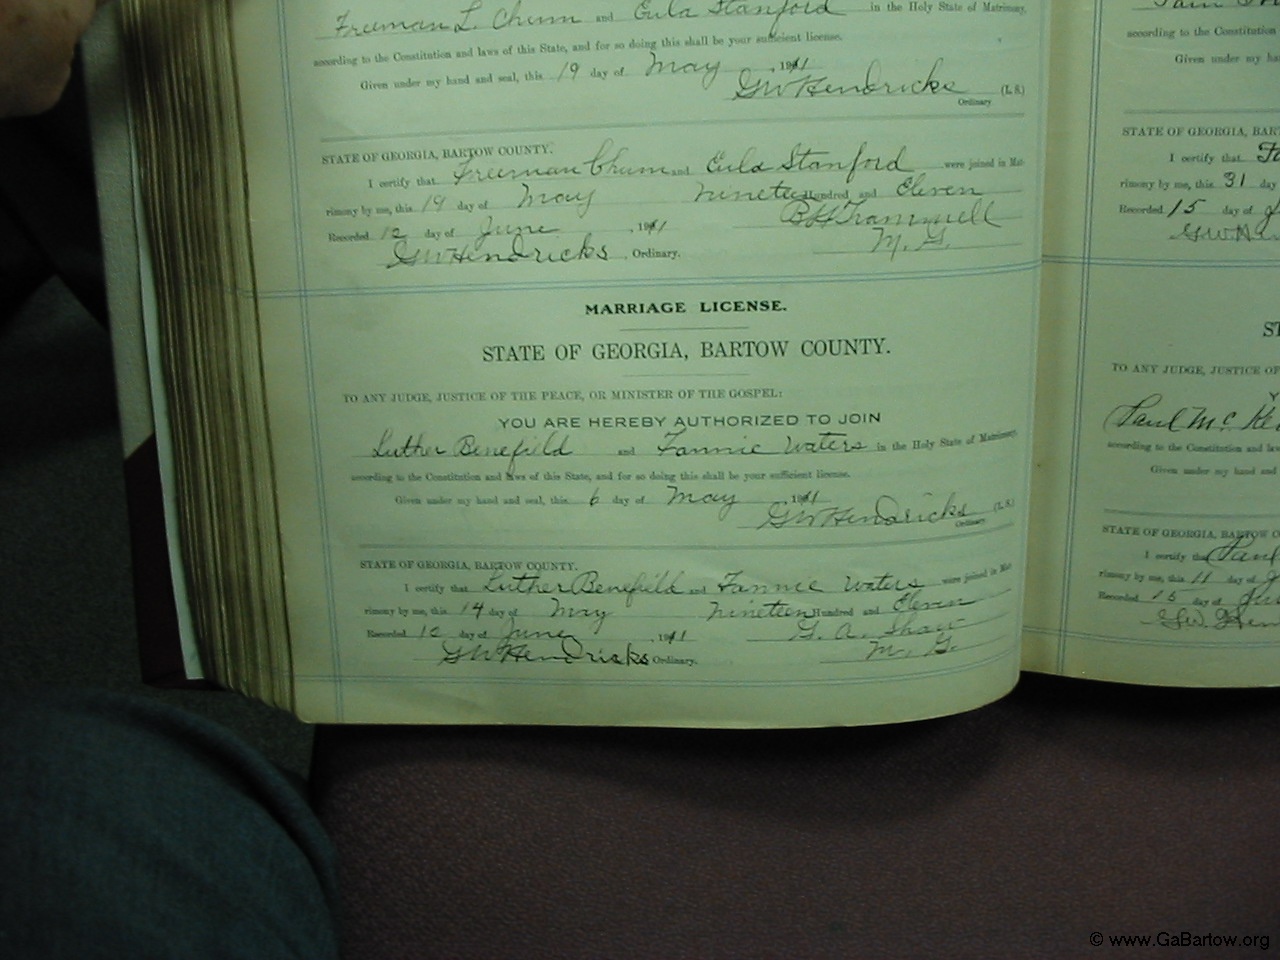 Freeman L. Chum and Eula Stanford in the Holy State of Matrimony,
according to the Constitution and laws of this State, and for so doing this shall be your sufficient license.
Given under my hand and seal, this 19 day of May , 1911
GW Hendricks (L. S.)
Ordinary
STATE OF GEORGIA, BARTOW COUNTY.
I certify that Freeman Chum and Eula Stanford were joined in Mat-
rimony by me, this 19 day of May nineteen Hundred and Eleven
Recorded 12 day of June , 1911 B H Trammell
GW Hendricks , Ordinary. M. G.
MARRIAGE LICENSE.
STATE OF GEORGIA, BARTOW COUNTY.
TO ANY JUDGE, JUSTICE OF THE PEACE, OR MINISTER OF THE GOSPEL:
YOU ARE HEREBY AUTHORIZED TO JOIN
Luther Benefield and Fannie Waters in the Holy State of Matrimony,
according to the Constitution and laws of this State, and for so doing this shall be your sufficient license.
Given under my hand and seal, this 6 day of May , 1911
GW Hendricks (L. S.)
Ordinary
STATE OF GEORGIA, BARTOW COUNTY.
I certify that Luther Benefield and Fannie Waters were joined in Mat-
rimony by me, this 14 day of May nineteen Hundred and Eleven
Recorded 12 day of June , 1911 G. A. Shaw
GW Hendricks Ordinary. M. G.
according to the Constitution
Given under my
STATE OF GEORGIA, BAR
I certify that
rimony by me, this 31 day
Recorded 15 day of
TO ANY JUDGE, JUSTICE OF
Paul Mc
according to the Constitution and
Given under my hand and
STATE OF GEORGIA, BARTOW CO
I certify that Paul
rimony by me, this 11 day of
Recorded 15 day of
GW. Hen
© www.GaBartow.org